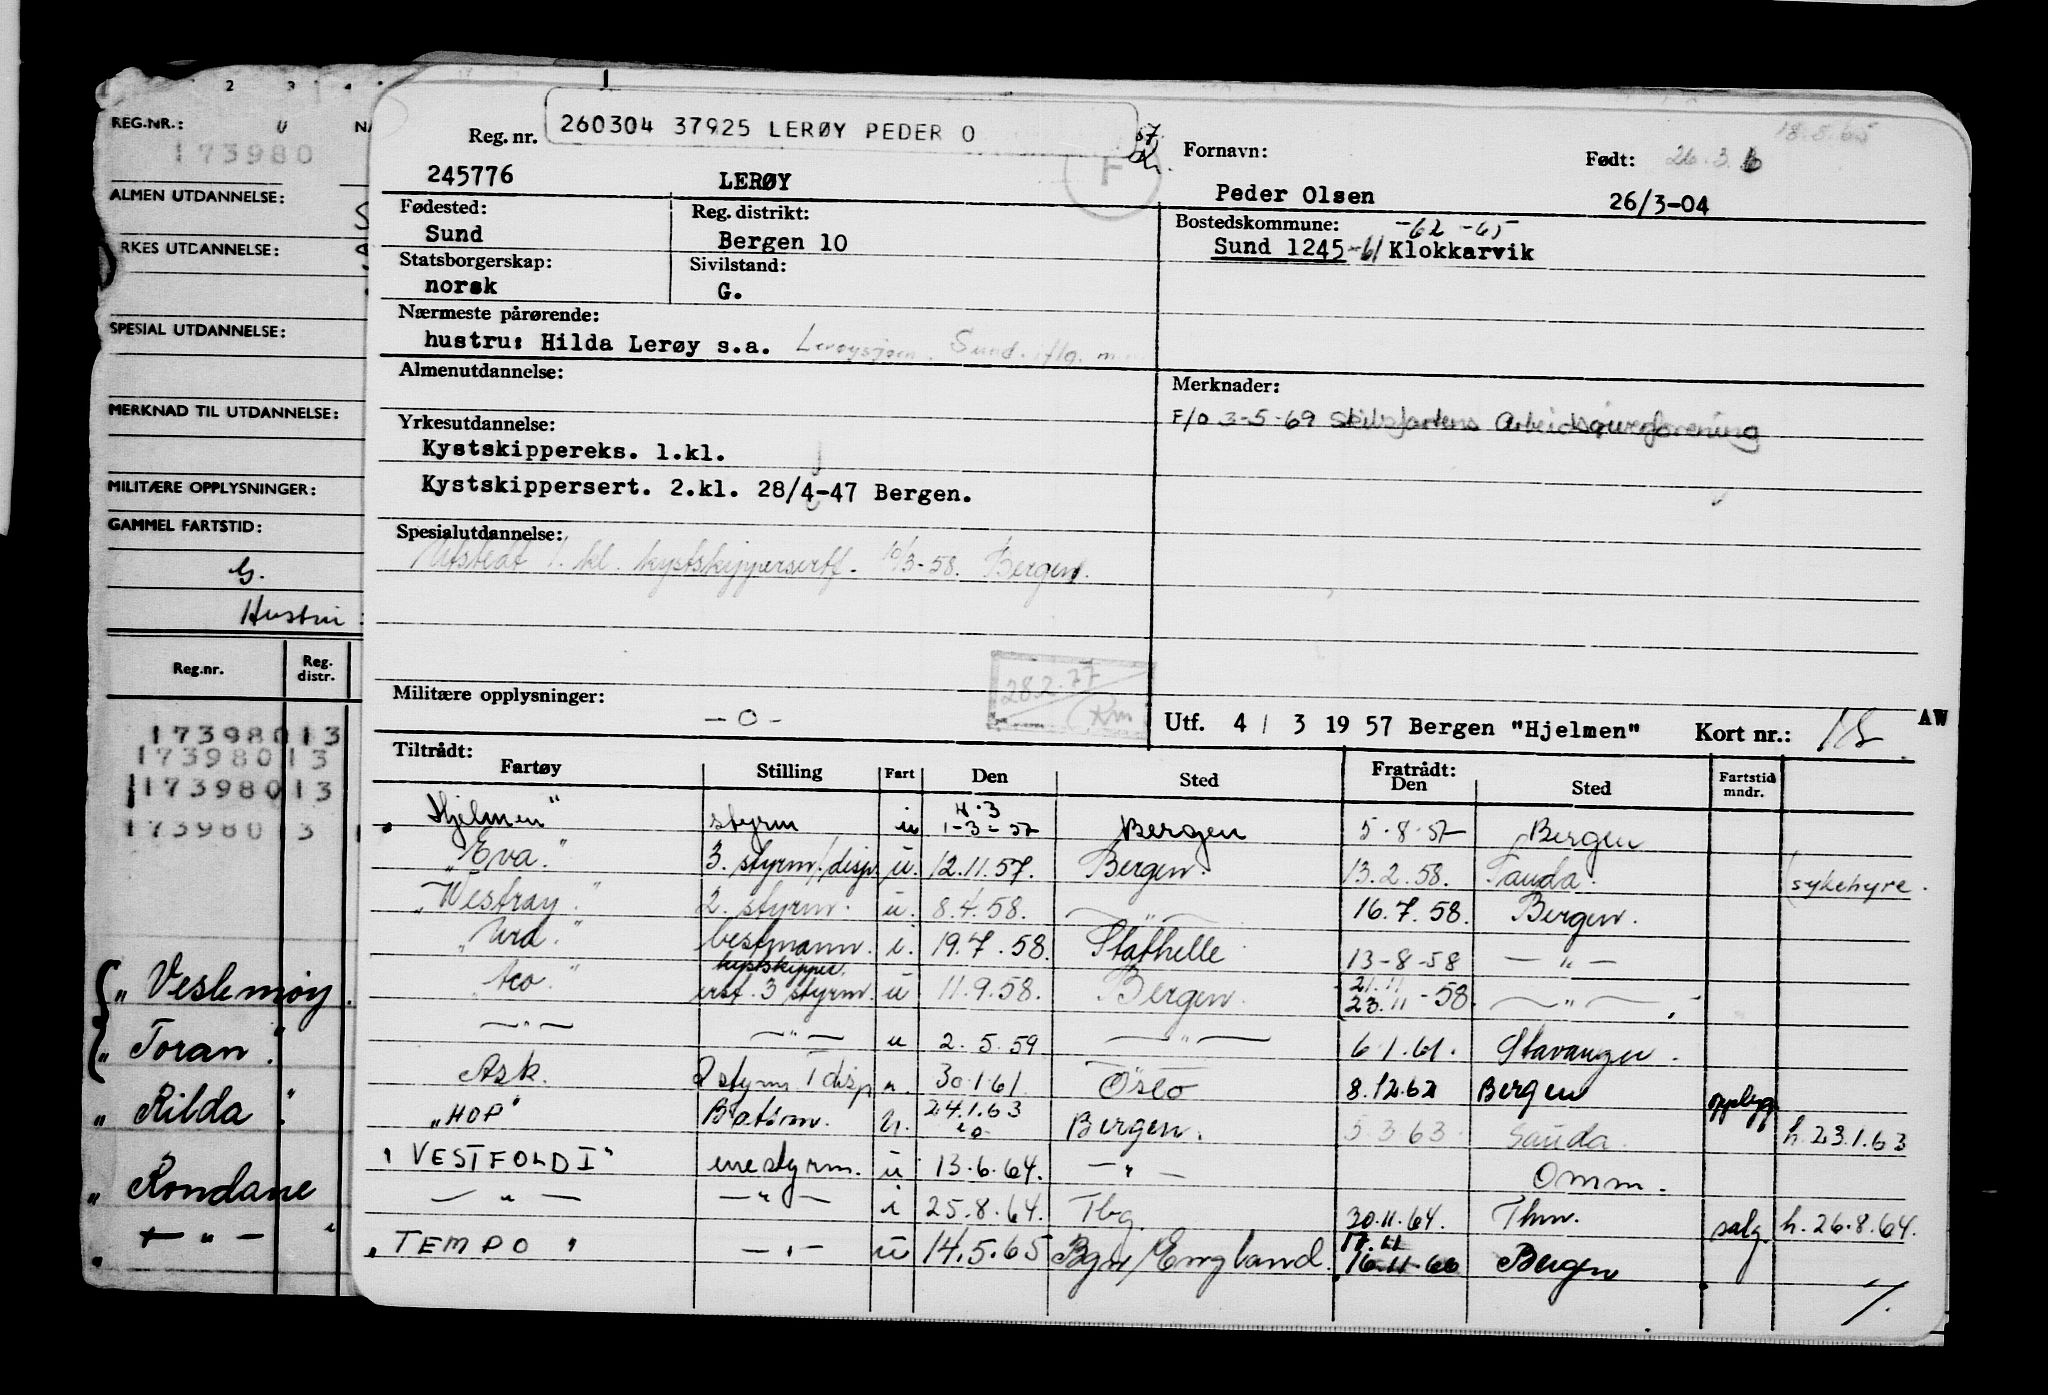 2 3 4
REG.NR.: NA
173980
ALMEN UTDANNELSE:
RKES UTDANNELSE:
SPESIAL UTDANNELSE:
MERKNAD TIL UTDANNELSE:
MILITÆRE OPPLYSNINGER:
GAMMEL FARTSTID:
G.
Hustru :
Reg.nr. Reg. distr.
173980 13
173980 13
173980 13
173980 13
„ Veslemøy.
„ Toran"
„ Rilda"
„ Rondane
— " —
Reg. nr. 260304 37925 LERØY PEDER O
245776 LERØY
F
Fornavn: Født: 26.3.
18.5.65
Peder Olsen 26/3-04
Fødested: Reg. distrikt: Bostedskommune: -62 -65
Sund Bergen 10 Sund 1245-61 Klokkarvik
Statsborgerskap: Sivilstand:
norsk G.
Nærmeste pårørende:
hustru: Hilda Lerøy s.a. Sund.
Almenutdannelse: Merknader:
F/O 3-5-69 Skibsfartens Arbeidsgiverforening
Yrkesutdannelse:
Kystskippereks. 1.kl.
Kystskippersert. 2.kl. 28/4-47 Bergen.
Spesialutdannelse:
Utstedt 1. kl. kystskippersertf. 10/3-58. Bergen.
28.2.77
Militære opplysninger:
— 0 —
Utf. 4 / 3 19 57 Bergen "Hjelmen" Kort nr.: AW
Tiltrådt: Fratrådt:
Fartøy Stilling Fart Den Sted Den Sted Fartstid mndr.
„Hjelmen" styrm u 4.3 1-3-57 Bergen 5-8-57 Bergen
„Eva." 3. styrm/disp u. 12.11.57. Bergen. 13.2.58. Sauda. (sykehyre.
„Westray." 2. styrm. u. 8.4.58. — " — 16.7.58. Bergen.
„Urd." bestmann. i. 19.7.58. Stathelle 13-8-58 — " —
kystskipper.
" erst. 3 styrm. u 11.9.58. Bergen. 21.11 23.11-58. — " —
— " — — " — u 2.5.59 — " — 6.1.61. Stavanger.
Ask. 2 styrm i disp u. 30.1.61 Oslo 8.12.62 Bergen opplagg
„HOP" Båtsm. u. 24.1.63 Bergen. 5.3.63 Sauda. h.23.1.63
„VESTFOLD I" enestyrm. u 13.6.64. — " — Omm.
— " — — " — i 25.8.64. Tbg. 30.11.64. Thm. salg h.26.8.64.
„TEMPO" — " — u 14.5.65 Bgn/England. 17.11 16.11-66 Bergen